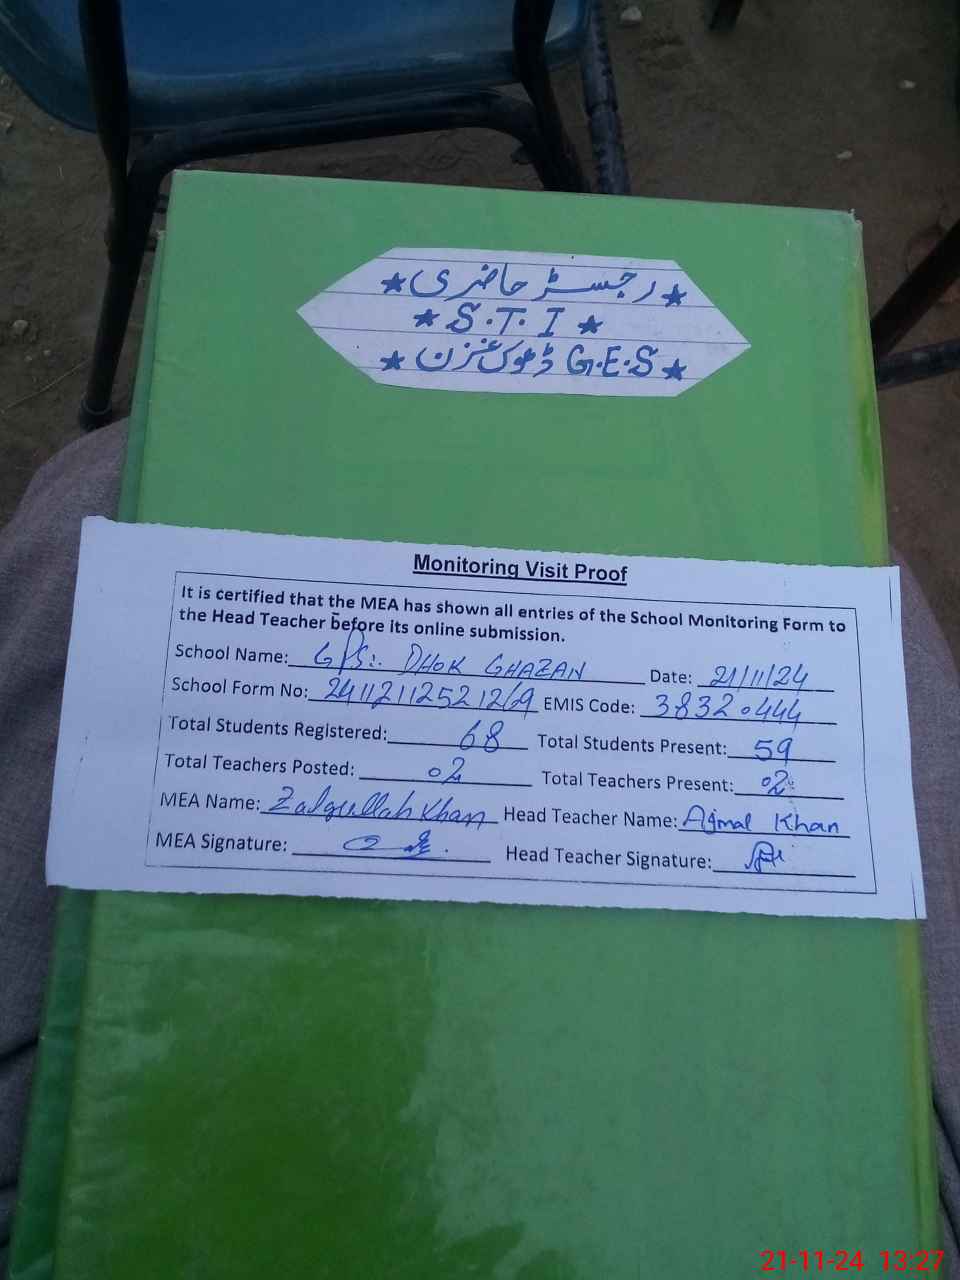 ★ رجسٹر حاضری ★
★ S.T.I ★
★ G.E.S ڈھوک غزن ★
Monitoring Visit Proof
It is certified that the MEA has shown all entries of the School Monitoring Form to
the Head Teacher before its online submission.
School Name: GPS: DHOK GHAZAN Date: 21/11/24
School Form No: EMIS Code: 38320444
Total Students Registered: 68 Total Students Present: 59
Total Teachers Posted: 02 Total Teachers Present: 02
MEA Name: Khan Head Teacher Name: Ajmal Khan
MEA Signature: Head Teacher Signature:
21-11-24 13:27